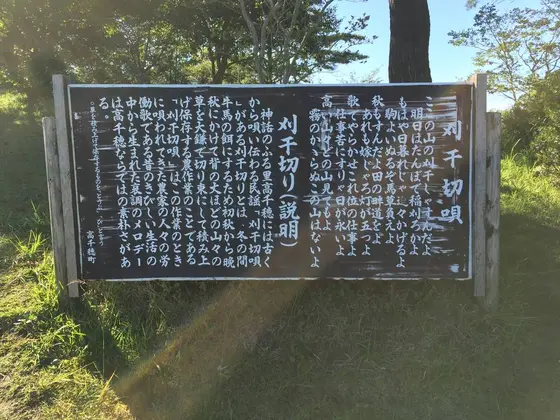 刈干切唄
ここの山の刈干しゃすんだよ
明日はたんぼで稲刈ろかよ
もはや日暮れじゃ迫々かげるよ
駒よいぬるぞ馬草負えよ
秋もすんだよ田の畦道をよ
あれも嫁じゃろ灯が五つよ
歌でやらかせこれ位の仕事よ
仕事苦にすりゃ日が永いよ
高い山ほどの山見てもよ
霧のかからぬこの山はないよ
刈干切り(説明)
神話のふる里高千穂には古く
から唄い伝わる民謡「刈干切唄
」がある刈干切りとは、冬の間
牛馬の餌にするため初秋から晩
秋にかけて背の丈ほどの山かや
草を大鎌で切り束にして積み上
げ保存する農作業のことである
「刈干切唄」はこの作業のとき
に唄われてきた農家の人々の労
働歌である昔のきびしい生活の
中から生まれた哀調のメロデー
は高千穂ならではの素朴さがあ
る
高千穂町